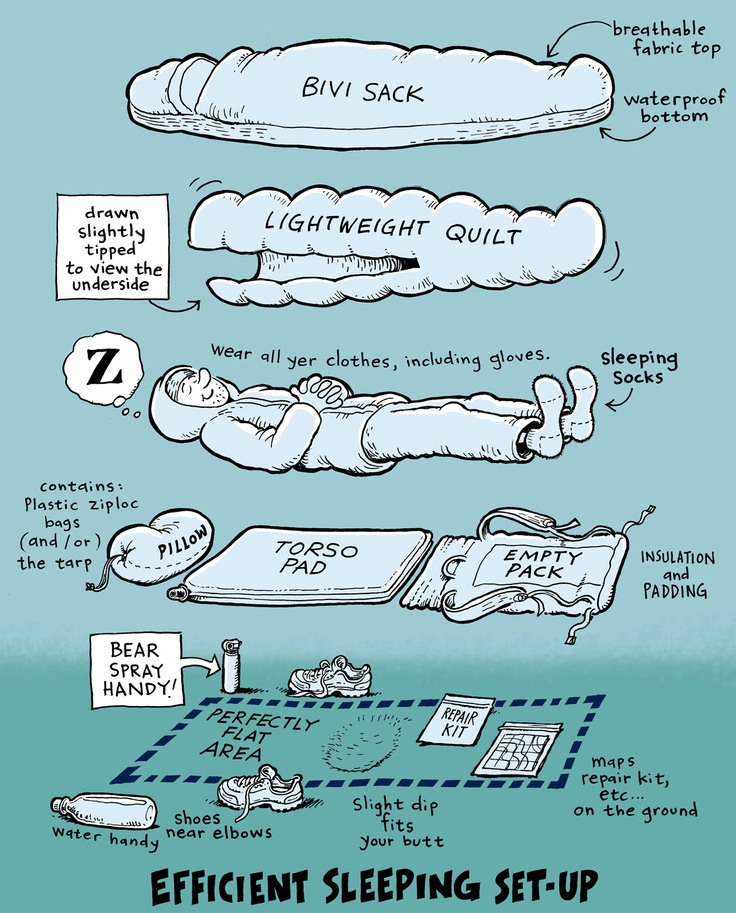 breathable
fabric top
BIVI SACK
waterproof
bottom
drawn
slightly
tipped
to view the
underside
LIGHTWEIGHT QUILT
Z
Wear all yer clothes, including gloves.
Sleeping
Socks
contains:
Plastic ziploc
bags
(and/or)
the tarp
PILLOW
TORSO
PAD
EMPTY
PACK
INSULATION
and
PADDING
BEAR
SPRAY
HANDY!
PERFECTLY
FLAT
AREA
REPAIR
KIT
maps
repair kit,
etc...
on the ground
water handy
shoes
near elbows
Slight dip
fits
your butt
EFFICIENT SLEEPING SET-UP